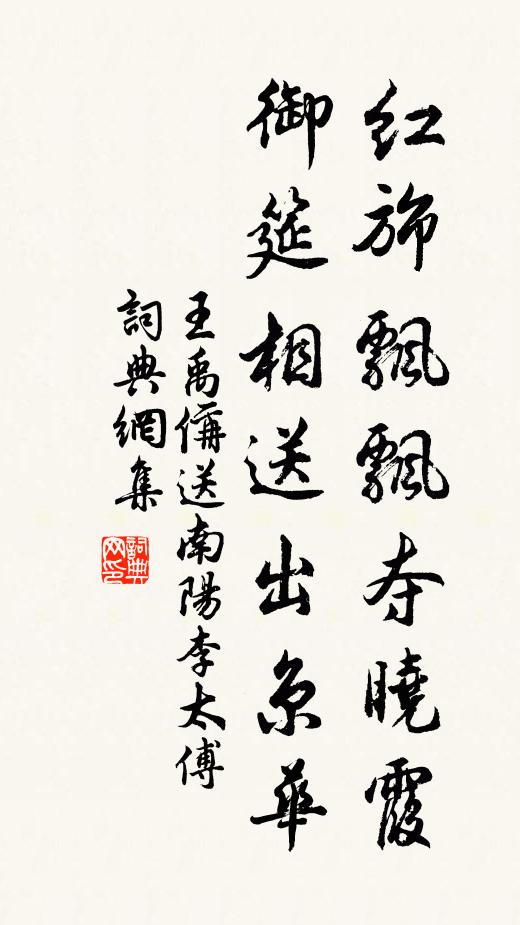 红旆飄飄夺曉霞
御筵相送出京華
王禹偁送南陽李太傅
詞典網集
詞典网印